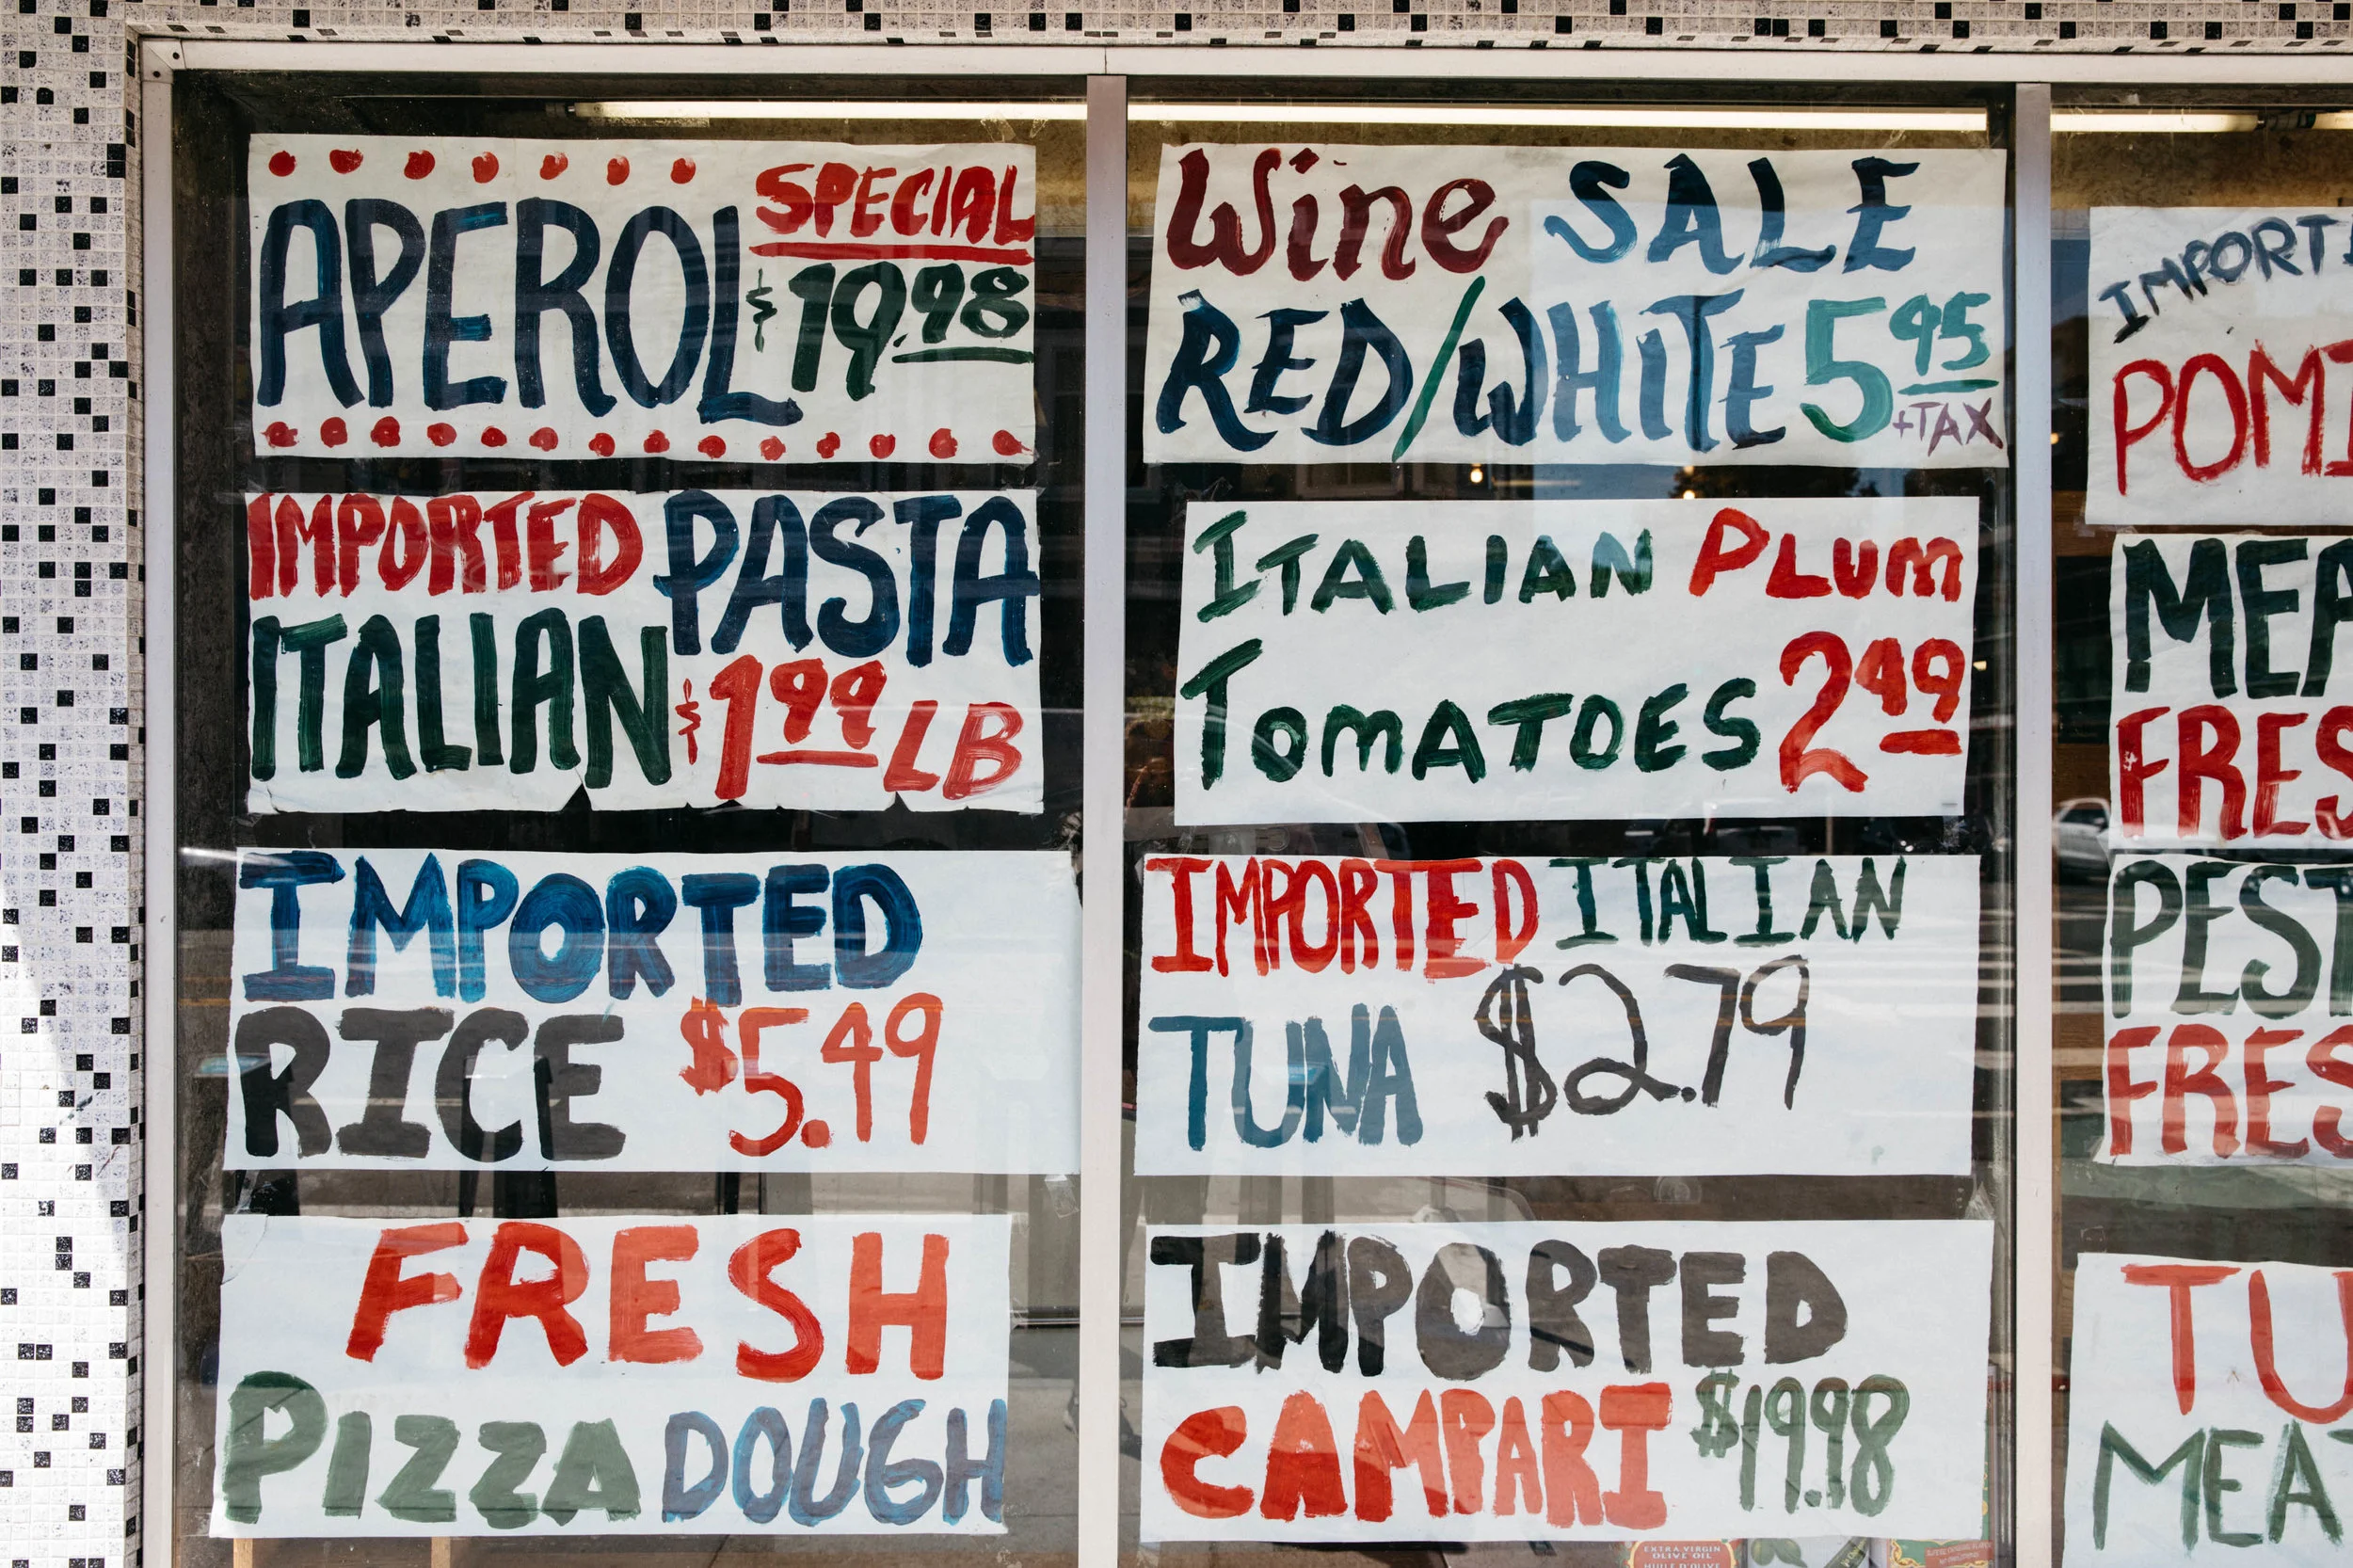 APEROL SPECIAL
$19.98
IMPORTED PASTA
ITALIAN $1.99 LB
IMPORTED
RICE $5.49
FRESH
PIZZA DOUGH
Wine SALE
RED/WHITE 5.95
+TAX
ITALIAN PLUM
TOMATOES 2.49
IMPORTED ITALIAN
TUNA $2.79
IMPORTED
CAMPARI $19.98
EXTRA VIRGIN
OLIVE OIL
HUILE D'OLIVE
IMPORT
POMI
MEA
FRES
PEST
FRES
TU
MEAT